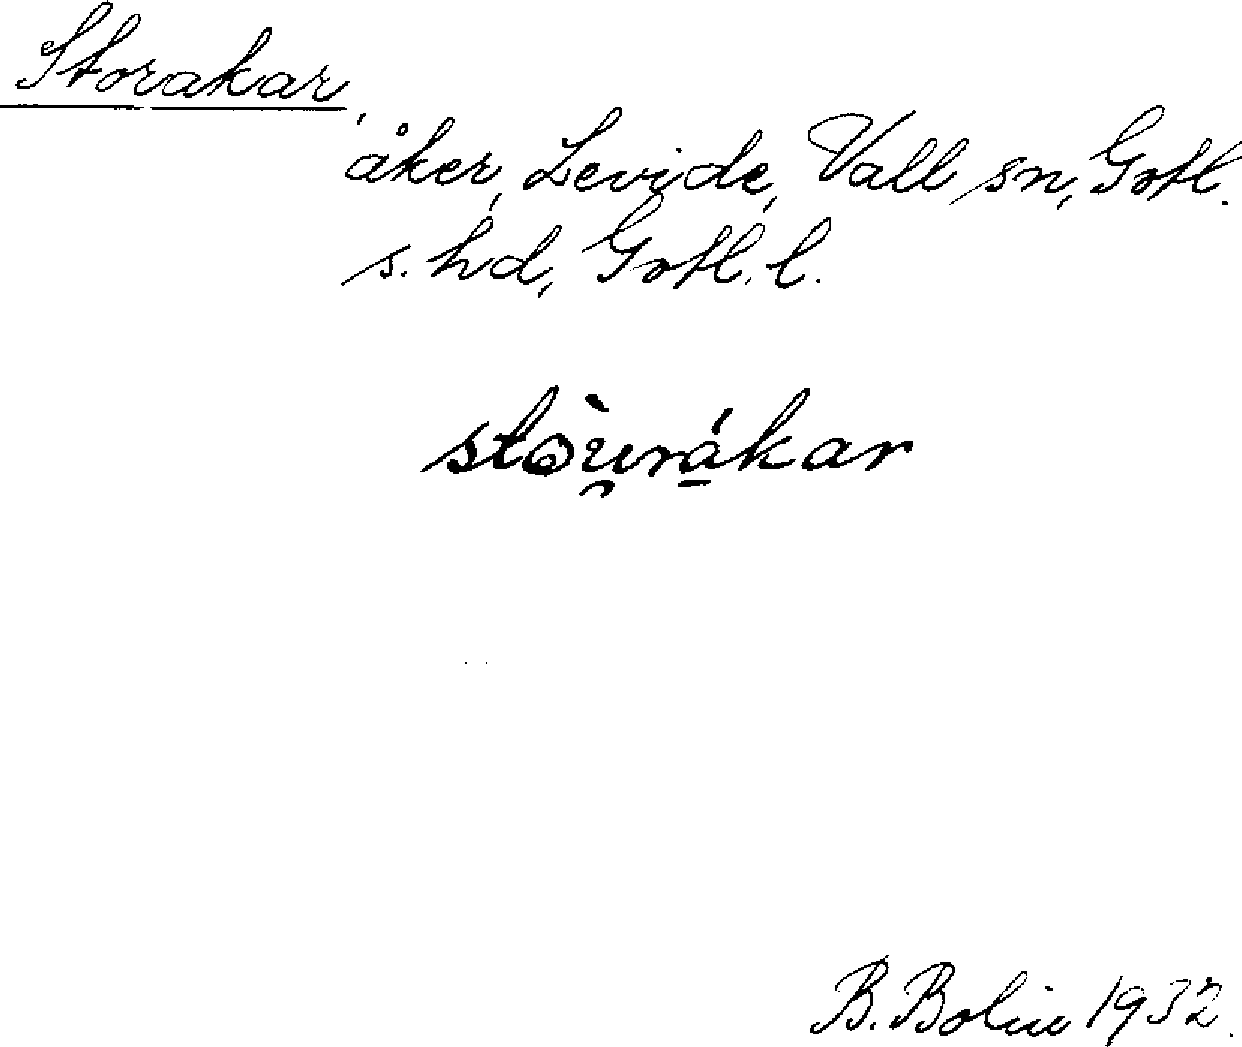 Storakar,
åker, Levide, Vall sn, Gotl.
s. hd, Gotl. l.
stòu̯rá̱kar
B. Bolin 1932.